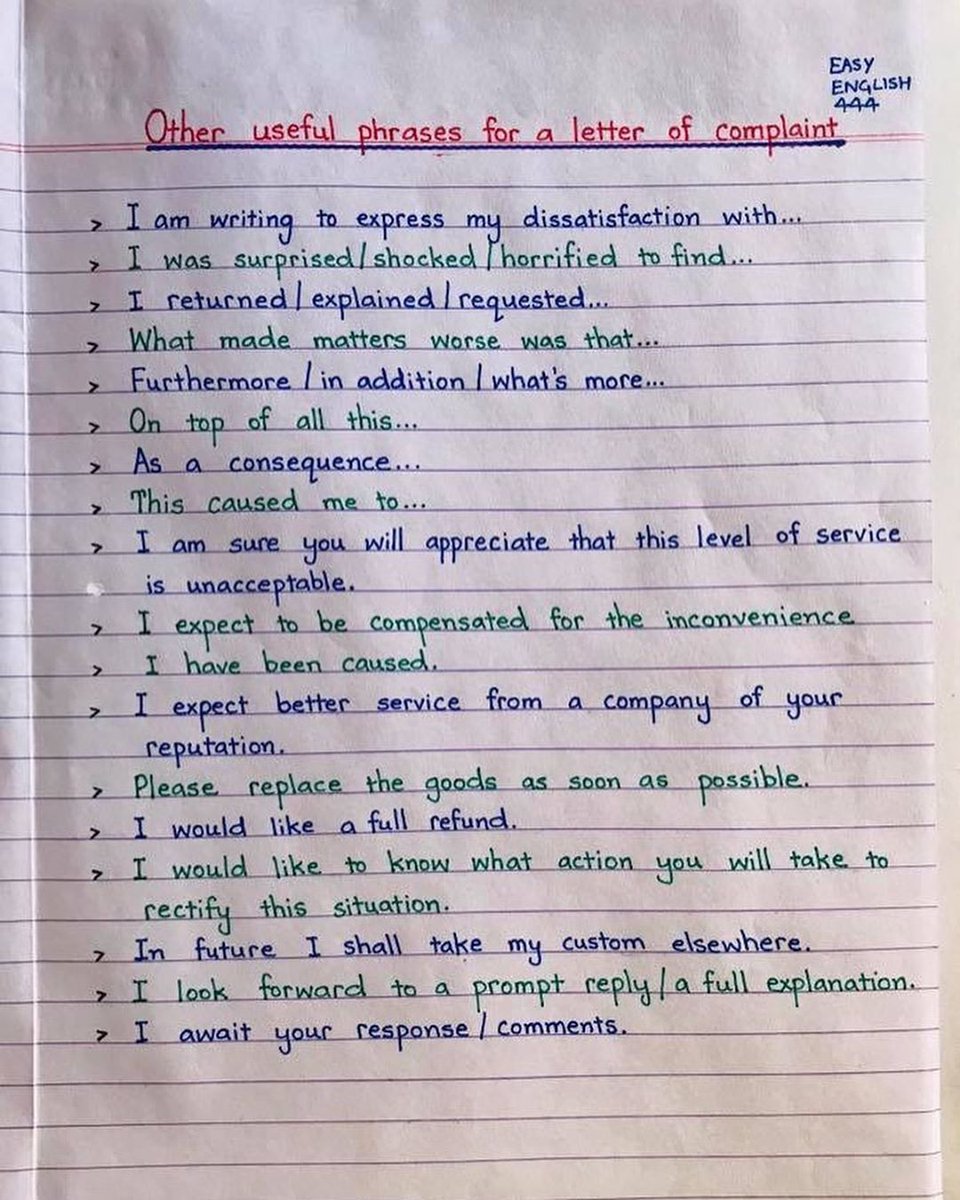 EASY
ENGLISH
444
Other useful phrases for a letter of complaint
> I am writing to express my dissatisfaction with...
> I was surprised/shocked/horrified to find...
> I returned/explained/requested...
> What made matters worse was that...
> Furthermore/in addition/what's more...
> On top of all this...
> As a consequence...
> This caused me to...
> I am sure you will appreciate that this level of service
is unacceptable.
> I expect to be compensated for the inconvenience
> I have been caused.
> I expect better service from a company of your
reputation.
> Please replace the goods as soon as possible.
> I would like a full refund.
> I would like to know what action you will take to
rectify this situation.
> In future I shall take my custom elsewhere.
> I look forward to a prompt reply/a full explanation.
> I await your response/comments.